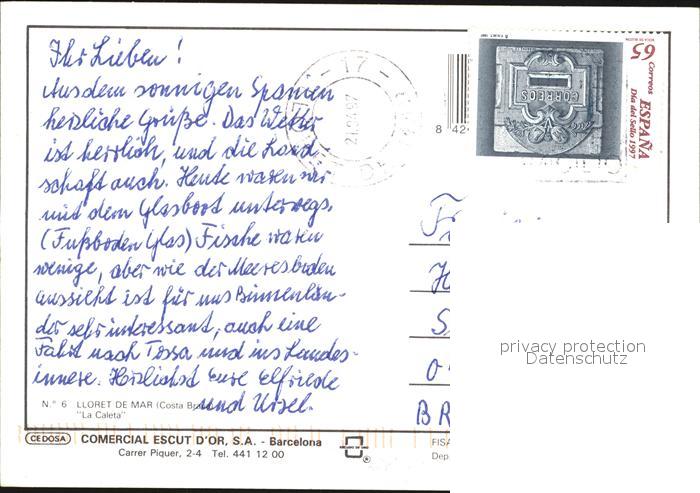 Ihr Lieben!
Aus dem sonnigen Spanien
herzliche Grüße. Das Wetter
ist herrlich, und die Land
schaft auch. Heute waren wir
mit dem Glasboot unterwegs,
(Fußboden Glas) Fische waren
wenige, aber wie der Meeresboden
aussieht ist für uns Binnenlän-
der sehr interessant, auch eine
Fahrt nach Tossa und ins Landes-
innere. Herzlichst Eure Elfriede
und Ursel.
N.° 6 LLORET DE MAR (Costa Brava)
"La Caleta"
CEDOSA
COMERCIAL ESCUT D'OR, S.A. - Barcelona
Carrer Piquer, 2-4 Tel. 441 12 00
-17-
21.04.97
8 42
65
Correos ESPAÑA
Día del Sello 1997
CORREOS
Fr
H
S
O
BR
privacy protection
Datenschutz
FISA
Dep.